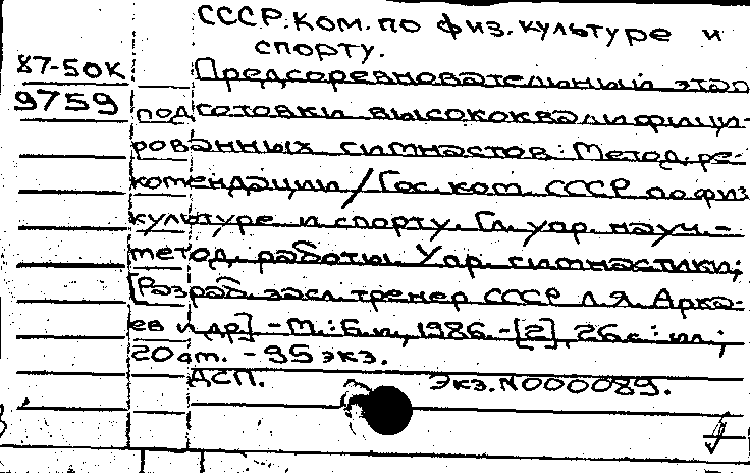 СССР. Ком. по физ. культуре и
спорту.
87-50К
Предсоревновательный этап
9759
подготовки высококвалифици-
рованных гимнастов: Метод. ре-
комендации / Гос. ком. СССР по физ.
культуре и спорту. Гл. упр. науч.-
метод. работы. Упр. гимнастики;
[Разраб. засл. тренер СССР Л.Я. Арка-
ев и др.] - М.: Б.и., 1986. - [2], 26 с.: ил.;
20 см. - 95 экз.
ДСП. Экз. N000089.